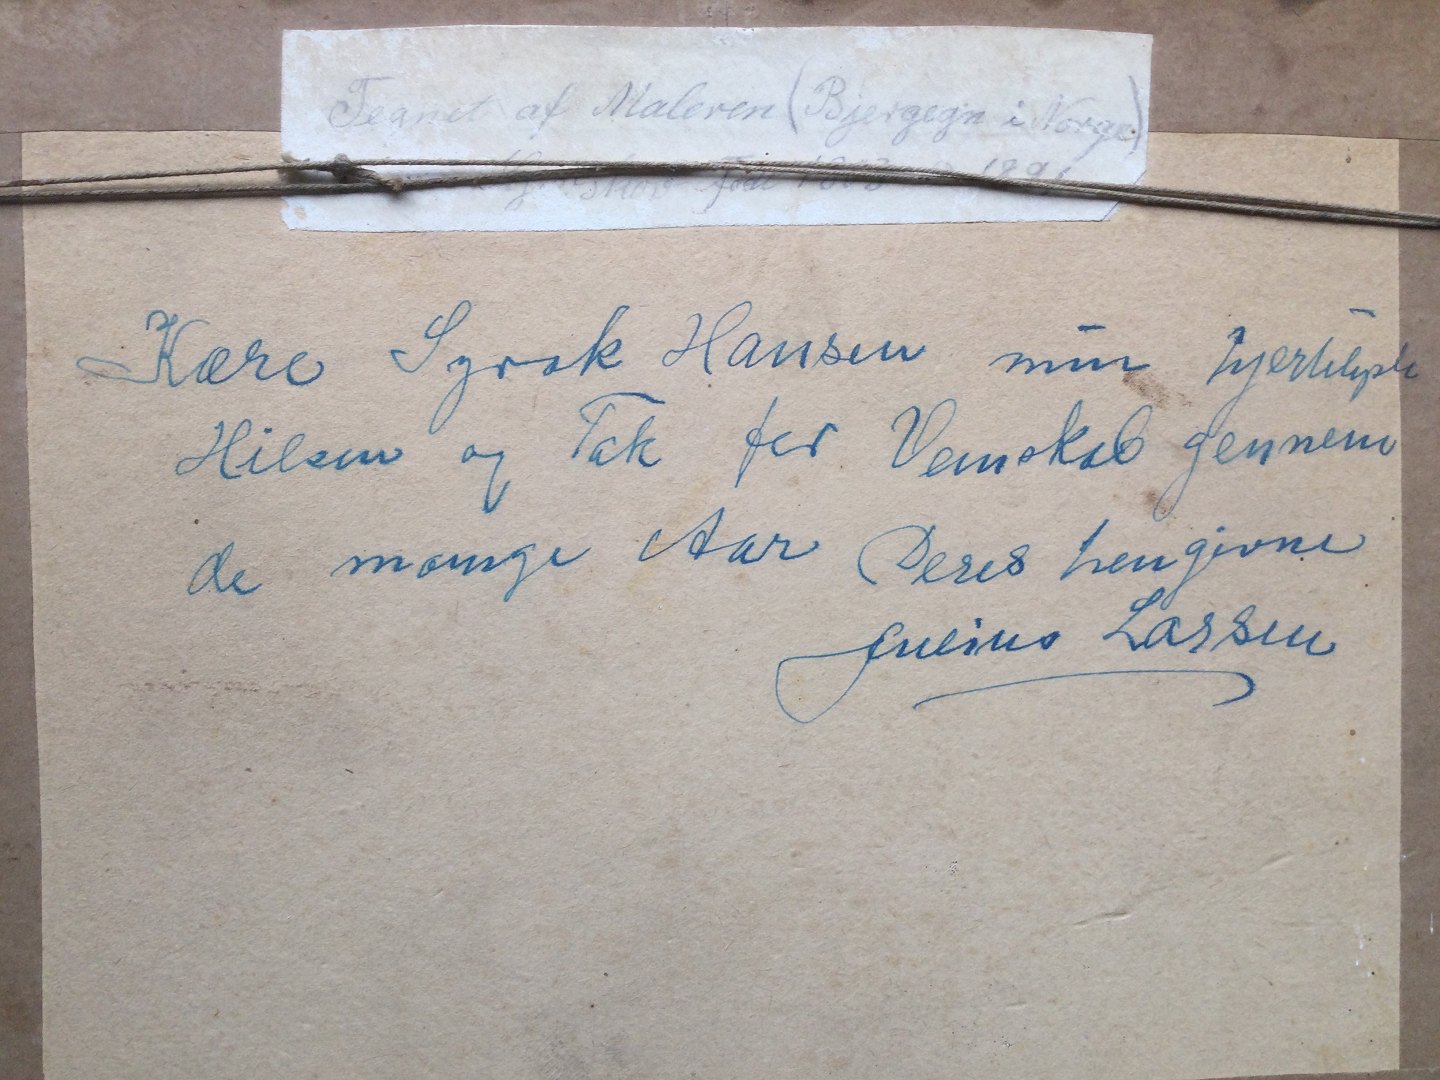 Tegnet af Maleren (Bjergegn i Norge)
født
Kære Hansen min hjerteligste
Hilsen og Tak for Venskab gennem
de mange Aar Deres hengivne
Julius Larsen